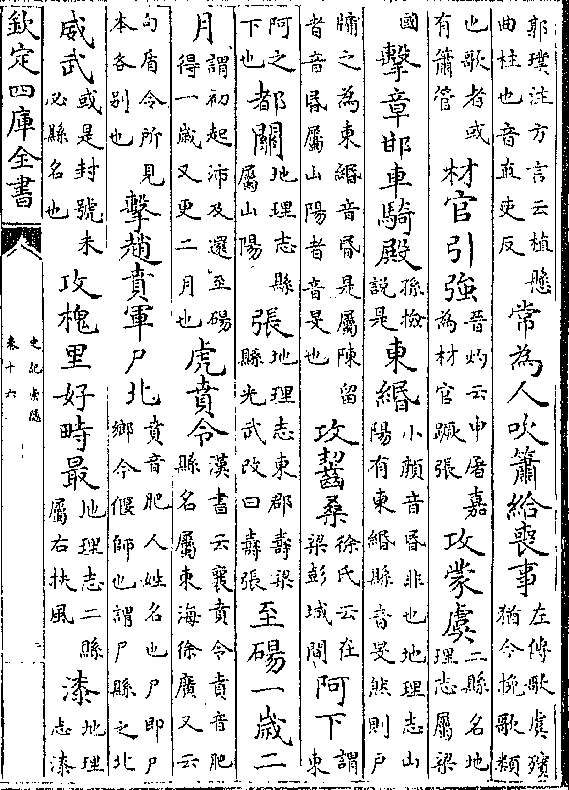 郭璞注方言云植懸曲柱也音直吏反常為人吹簫給喪事左傳歌虞殯猶今挽歌類
也歌者或有簫管材官引強晉灼云申屠嘉為材官蹶張攻蒙虞二縣名地理志屬梁
國擊章邯車騎殿孫檢說是東緡小顔音昏非也地理志山陽有東緡縣音旻然則戸
牖之為東緡音昏是屬陳留者音昏屬山陽者音旻也攻齧桑徐氏云在梁彭城間阿下謂東
阿之下也都關地理志縣屬山陽張地理志東郡壽梁縣光武改曰壽張至碭一歲二
月謂初起沛及還至碭得一歲又更二月也虎賁令漢書云襄賁令賁音肥縣名屬東海徐廣又云
句盾令所見本各别也擊趙賁軍尸北賁音肥人姓名也尸即尸鄉今偃師也謂尸縣之北
威武或是封號未必縣名也攻槐里好畤最地理志二縣屬右扶風漆地理志漆
欽定四庫全書
史記索隱
卷十六